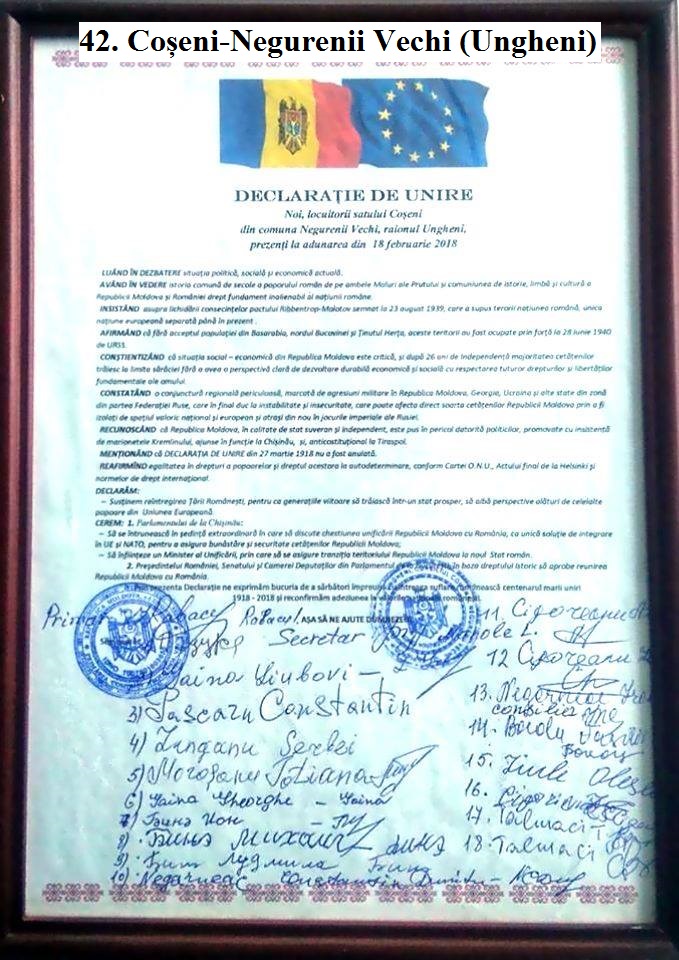 42. Coșeni-Negurenii Vechi (Ungheni)
DECLARAȚIE DE UNIRE
Noi, locuitorii satului Coșeni
din comuna Negurenii Vechi, raionul Ungheni,
prezenți la adunarea din 18 februarie 2018
LUÂND ÎN DEZBATERE situația politică, socială și economică actuală.
AVÂND ÎN VEDERE istoria comună de secole a poporului român de pe ambele Maluri ale Prutului și comuniunea de istorie, limbă și cultură a
Republicii Moldova și României drept fundament inalienabil al națiunii române.
INSISTÂND asupra lichidării consecințelor pactului Ribbentrop-Molotov semnat la 23 august 1939, care a supus terorii națiunea română, unica
națiune europeană separată până în prezent .
AFIRMÂND că fără acceptul populației din Basarabia, nordul Bucovinei și Ținutul Herța, aceste teritorii au fost ocupate prin forță la 28 iunie 1940
de URSS.
CONȘTIENTIZÂND că situația social – economică din Republica Moldova este critică, și după 26 ani de Independență majoritatea cetățenilor
trăiesc la limita sărăciei fără a avea o perspectivă clară de dezvoltare durabilă economică și socială cu respectarea tuturor drepturilor și libertăților
fundamentale ale omului.
CONSTATÂND o conjunctură regională periculoasă, marcată de agresiuni militare în Republica Moldova, Georgia, Ucraina și alte state din zonă
din partea Federației Ruse, care în final duc la instabilitate și insecuritate, care poate afecta direct soarta cetățenilor Republicii Moldova prin a fi
izolați de spațiul valoric național și european și atrași din nou în jocurile imperiale ale Rusiei.
RECUNOSCÂND că Republica Moldova, în calitate de stat suveran și independent, este pus în pericol datorită politicilor, promovate cu insistență
de marionetele Kremlinului, ajunse în funcție la Chișinău, și, anticostituțional la Tiraspol.
MENȚIONÂND că DECLARAȚIA DE UNIRE din 27 martie 1918 nu a fost anulată.
REAFIRMÎND egalitatea în drepturi a popoarelor și dreptul acestora la autodeterminare, conform Cartei O.N.U., Actului final de la Helsinki și
normelor de drept internațional.
DECLARĂM:
– Susținem reîntregirea Țării Românești, pentru ca generațiile viitoare să trăiască într-un stat prosper, să aibă perspective alături de celelalte
popoare din Uniunea Europeană.
CEREM: 1. Parlamentului de la Chișinău:
– Să se întrunească în ședință extraordinară în care să discute chestiunea unificării Republicii Moldova cu România, ca unică soluție de integrare
în UE și NATO, pentru a asigura bunăstare și securitate cetățenilor Republicii Moldova;
– Să înființeze un Minister al Unificării, prin care să se asigure tranziția teritoriului Republicii Moldova la noul Stat român.
2. Președintelui României, Senatului și Camerei Deputaților din Parlamentul în baza dreptului istoric să aprobe reunirea
Republicii Moldova cu România.
prezenta Declarație ne exprimăm bucuria de a sărbători împreună cu întreaga suflare românească centenarul marii uniri
1918 - 2018 și reconfirmăm adeziunea la
AȘA SĂ NE AJUTE DUMNEZEU
Primar
Secretar
Gaina Liubovi
3) Pascaru Constantin
4) Zanganu Serbei
5) Moroșanu Totiana
6) Gaina Gheorghe – Gaina
7) Бынэ Ион
8) Бынэ Михаил
9) Бын Лудмила
10) Negarneac Constantin Dumitru
11. Cigoreanu
12 Cigoreanu
13. Negarneac
consilier
14.
15.
16.
17. Talmaci T
18. Talmaci